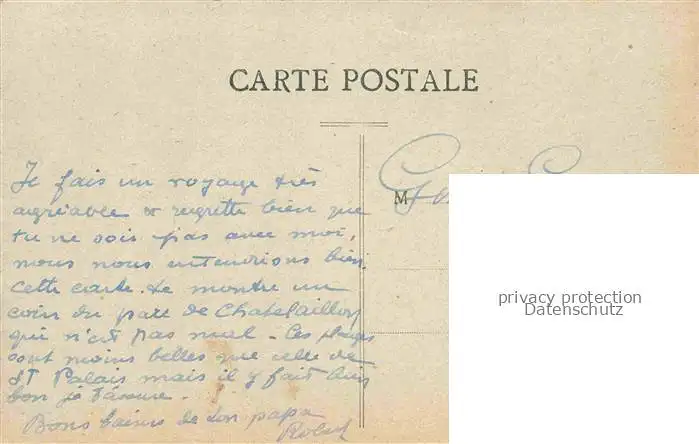 CARTE POSTALE
Je fais un voyage très
agréable & regrette bien que
tu ne sois pas avec moi,
nous nous entendrions bien.
Cette carte te montre un
coin du parc de Chatelaillon
qui n'est pas mal - Ces plages
sont moins belles que celle de
St Palais mais il y fait
bon je t'assure.
Bons baisers de ton papa
M
privacy protection
Datenschutz